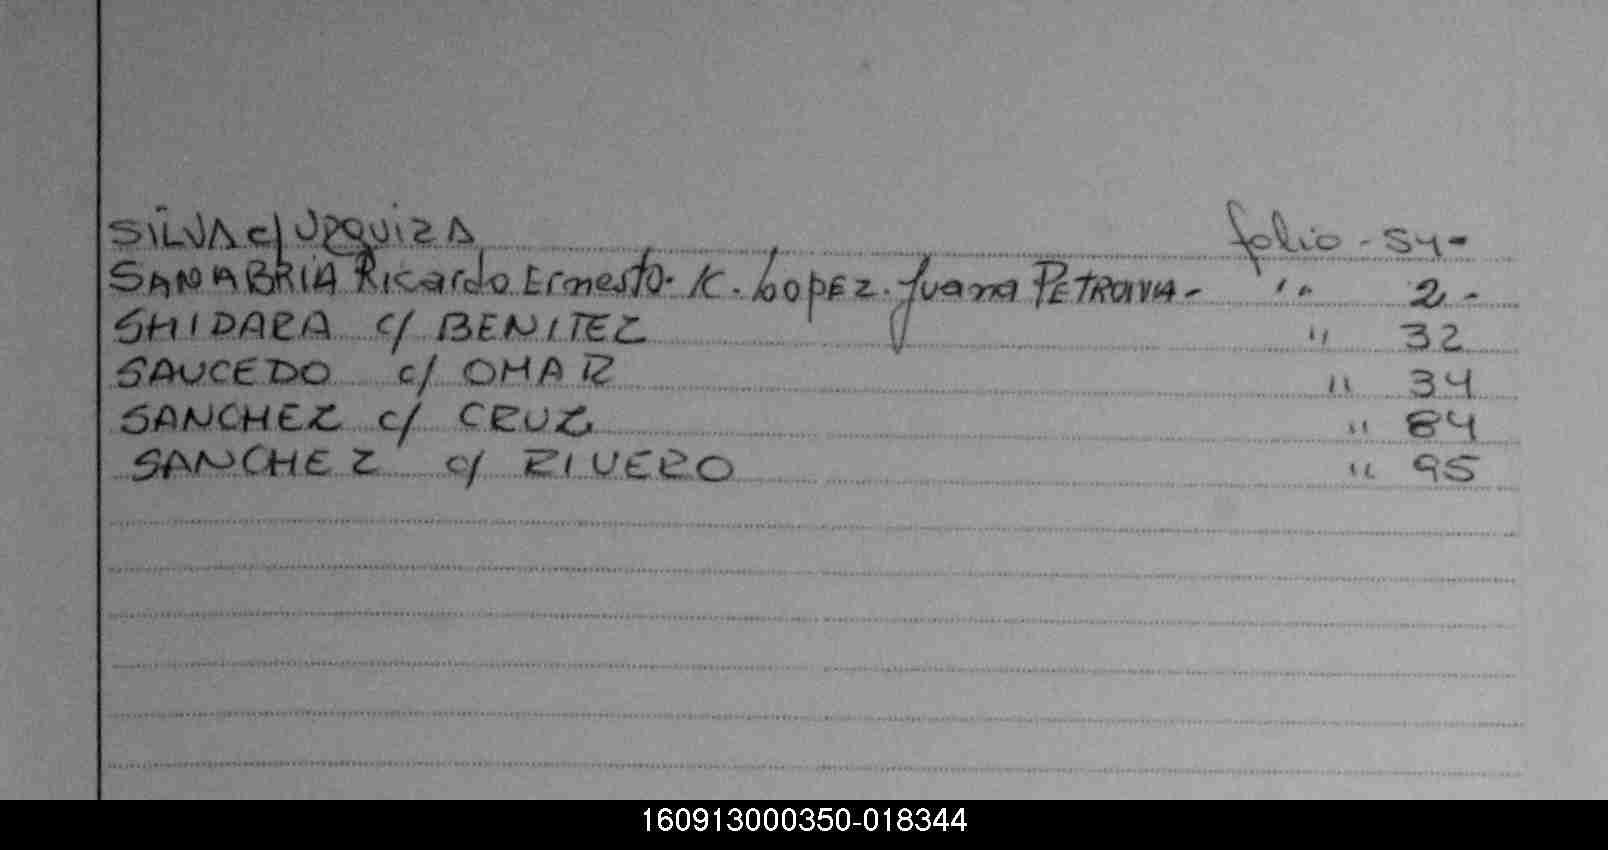 SILVA c/ URQUIZA folio - 54 -
SANABRIA Ricardo Ernesto. K. Lopez. Juana PETRONA - " 2 -
SHIDARA c/ BENITEZ " 32
SAUCEDO c/ OMAR " 34
SANCHEZ c/ CRUZ " 84
SANCHEZ c/ RIVERO " 95
160913000350-018344